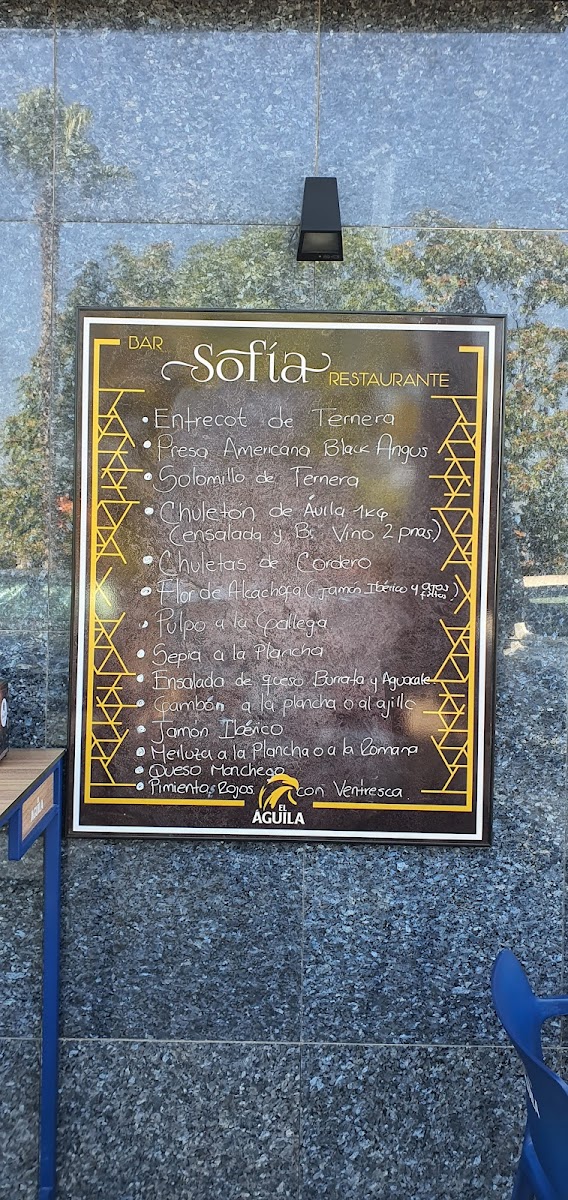 BAR
Sofía
RESTAURANTE
• Entrecot de Ternera
• Presa Americana Black Angus
• Solomillo de Ternera
• Chuleton de Ávila 1kg
(ensalada y B. Vino 2 pnas.)
• Chuletas de Cordero
• Flor de Alcachofa (jamón Ibérico y ajos fritos)
• Pulpo a la Gallega
• Sepia a la Plancha
• Ensalada de queso Burrata y Aguacate
• Gambón a la plancha o al ajillo
• Jamón Ibérico
• Merluza a la Plancha o a la Romana
• Queso Manchego
• Pimientos Rojos con Ventresca
EL
ÁGUILA